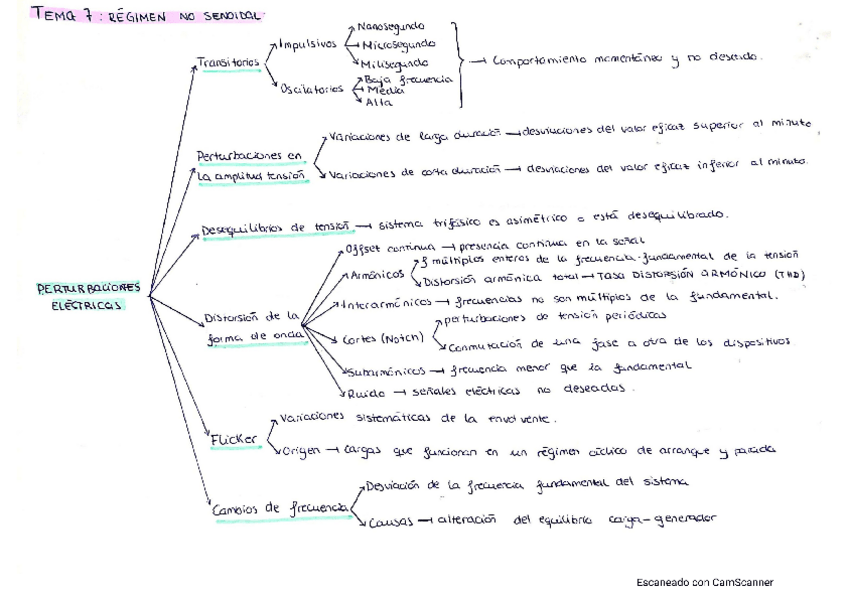 TEMA 7: RÉGIMEN NO SENOIDAL
Transitorios
Impulsivos
Nanosegundo
Microsegundo
Milisegundo
Oscilatorios
Baja frecuencia
Media
Alta
→ Comportamiento momentáneo y no deseado.
Perturbaciones en
la amplitud tensión
Variaciones de larga duración → desviaciones del valor eficaz superior al minuto
Variaciones de corta duración → desviaciones del valor eficaz inferior al minuto.
Desequilibrios de tensión → sistema trifásico es asimétrico o está desequilibrado.
PERTURBACIONES
ELÉCTRICAS
Distorsión de la
forma de onda
Offset continua → presencia continua en la señal
Armónicos
f múltiplos enteros de la frecuencia fundamental de la tensión
Distorsión armónica total → TASA DISTORSIÓN ARMÓNICO (THD)
Interarmónicos → frecuencias no son múltiplos de la fundamental.
Cortes (Notch)
perturbaciones de tensión periódicas
Conmutación de una fase a otra de los dispositivos
Subarmónicos → frecuencia menor que la fundamental
Ruido → señales eléctricas no deseadas.
Flicker
Variaciones sistemáticas de la envolvente.
Origen → cargas que funcionan en un régimen cíclico de arranque y parada
Cambios de frecuencia
Desviación de la frecuencia fundamental del sistema
Causas → alteración del equilibrio carga-generador
Escaneado con CamScanner